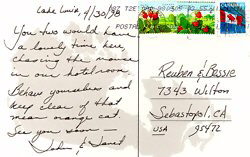 Lake Louise, 4/30/98
You two would have
a lovely time here,
chasing the mouse
in our hotel room.
Behave yourselves and
keep clear of that
mean orange cat.
See you soon —
John & Janet
CANADA
Reuben & Bessie
7343 Wilton
Sebastopol, CA
USA 95472